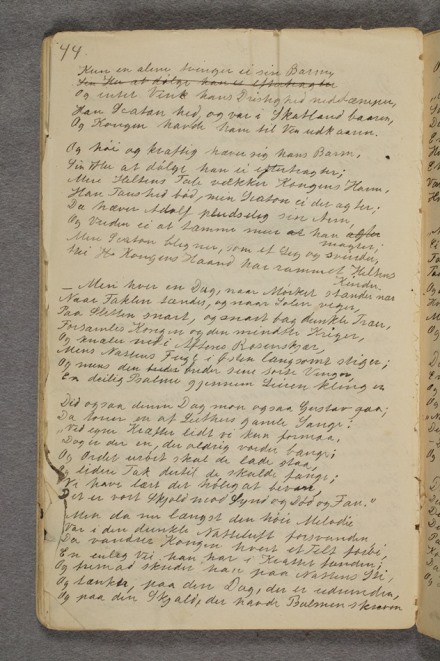 44.
Kun en alene tvinger ei sin Barm,
Sin Hu at dølge han ei eftertragter
Og intet Vink hans Dristighed nedtæmper,
Han Seaton hed, og var i Skotland baaren,
Og Kongen havde ham til Ven udkaaren.
Og høi og kraftig hæver sig hans Barm,
Sin Hu at dølge han ei eftertragter;
Mere Heltens Tale vækker Kongens Harm,
Han Taushed bød, men Seaton ei det agter;
Da hæver Adolf pludselig sin Arm
Og Vreden ei at tæmme mer han
magter;
Men Seaton blegner, som et Lig og svinder,
thi Kongens Haand har rammet Heltens
Kinder.
— Men hver en Dag, naar Mørket stander nær
Naar Faklen tændes, og naar Solen viger,
Paa Sletten snart, og snart bag dunkle Træer,
Forsamles Kongen og den mindste Kriger,
Og knæler ned i Aftnens Rosenskjær,
Mens Nattens Fugl i Østen langsomt stiger;
Og mens den breder sine sorte Vinger,
En deilig Psalme gjennem Leiren klinger
Did ogsaa denne Dag mon ogsaa Gustav gaa,
Da toner en af Luthers gamle Sange:
"Ved egne Kræfter lidt vi kun formaa,
Dog er der en, der aldrig vorder bange;
Og Ordet urørt skal de lade staa,
og liden Tak dertil de skulde fange;
Vi have lært det helligt at bevare
Det er vort Skjold mod Synd og Død og Fare."
Men da nu længst den høie Melodie
Var i den dunkle Natteluft forsvunden,
Da vandrer Kongen hvert et Telt forbi,
En enlig Vei han har i Krattet funden;
Og fremad skrider han paa Nattens Sti,
Og tænker paa den Dag, der er udrunden,
Og paa den Skjald, der havde Psalmen skreven